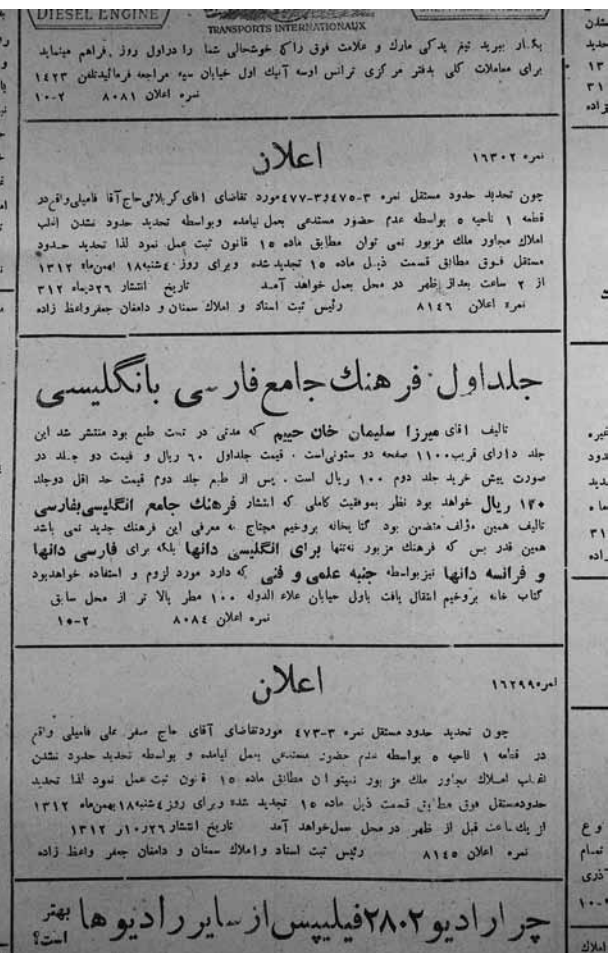 DIESEL ENGINE
TRANSPORTS INTERNATIONAUX
بکار ببرید تیغ یدکی مارک و علامت فوق راکه خوشحالی شما را دراول روز فراهم مینماید
برای معاملات کلی بدفتر مرکزی ترانس اوسه آتیک اول خیابان سپه مراجعه فرمائیدتلفن ١٤٢٣
نمره اعلان ٨٠٨١ ٢-١٠
نمره ١٦٣٠٢
اعلان
چون تحدید حدود مستقل نمره ٣-٤٧٥و٣-٤٧٧مورد تقاضای اقای کربلائی‌حاج آقا فامیلی‌واقع‌در
قطعه ١ ناحیه ٥ بواسطه عدم حضور مستدعی بعمل نیامده وبواسطه تحدید حدود نشدن اغلب
املاک مجاور ملک مزبور نمی توان مطابق ماده ١٥ قانون ثبت عمل نمود لذا تحدید حدود
مستقل فوق مطابق قسمت ذیل ماده ١٥ تجدید شده وبرای روز ٤شنبه١٨ بهمن‌ماه ١٣١٢
از ٢ ساعت بعداز ظهر در محل بعمل خواهد آمد تاریخ انتشار ٢٦دیماه ٣١٢
نمره اعلان ٨١٤٦ رئیس ثبت اسناد و املاک سمنان و دامغان جعفرواعظ زاده
جلداول فرهنك جامع فارسی بانگلیسی
تالیف اقای میرزا سلیمان خان حییم که مدتی در تحت طبع بود منتشر شد این
جلد دارای قریب ١١٠٠ صفحه دو ستونی‌است . قیمت جلداول ٦٠ ریال و قیمت دو جلد در
صورت پیش خرید جلد دوم ١٠٠ ریال است . پس از طبع جلد دوم قیمت حد اقل دوجلد
١٢٠ ریال خواهد بود نظر بموفقیت کاملی که انتشار فرهنك جامع انگلیسی‌بفارسی
تالیف همین مؤلف متضمن بود کتابخانه بروخیم محتاج به معرفی این فرهنك جدید نمی باشد
همین قدر بس که فرهنك مزبور نه‌تنها برای انگلیسی دانها بلکه برای فارسی دانها
و فرانسه دانها نیزبواسطه جنبه علمی و فنی که دارد مورد لزوم و استفاده خواهدبود
کتاب خانه بروخیم انتقال یافت باول خیابان علاء الدوله ١٠٠ مطر بالا تر از محل سابق
نمره اعلان ٨٠٨٤ ٢-١٥
نمره١٦٢٩٩
اعلان
چون تحدید حدود مستقل نمره ٣-٤٧٣ موردتقاضای آقای حاج صفر علی فامیلی واقع
در قطعه ١ ناحیه ٥ بواسطه عدم حضور مستدعی بعمل نیامده و بواسطه تحدید حدود نشدن
اغلب املاک مجاور ملک مزبور نمیتوان مطابق ماده ١٥ قانون ثبت عمل نمود لذا تحدید
حدودمستقل فوق مطابق قسمت ذیل ماده ١٥ تجدید شده وبرای روز ٤شنبه١٨بهمن‌ماه ١٣١٢
از یکساعت قبل از ظهر در محل عمل‌خواهد آمد تاریخ انتشار ٢٦ر١٠ر ١٣١٢
نمره اعلان ٨١٤٥ رئیس ثبت اسناد واملاک سمنان و دامغان جعفر واعظ زاده
چرا رادیو ٢٨٠٢ فیلیپس از سایر رادیو ها بهتر است؟